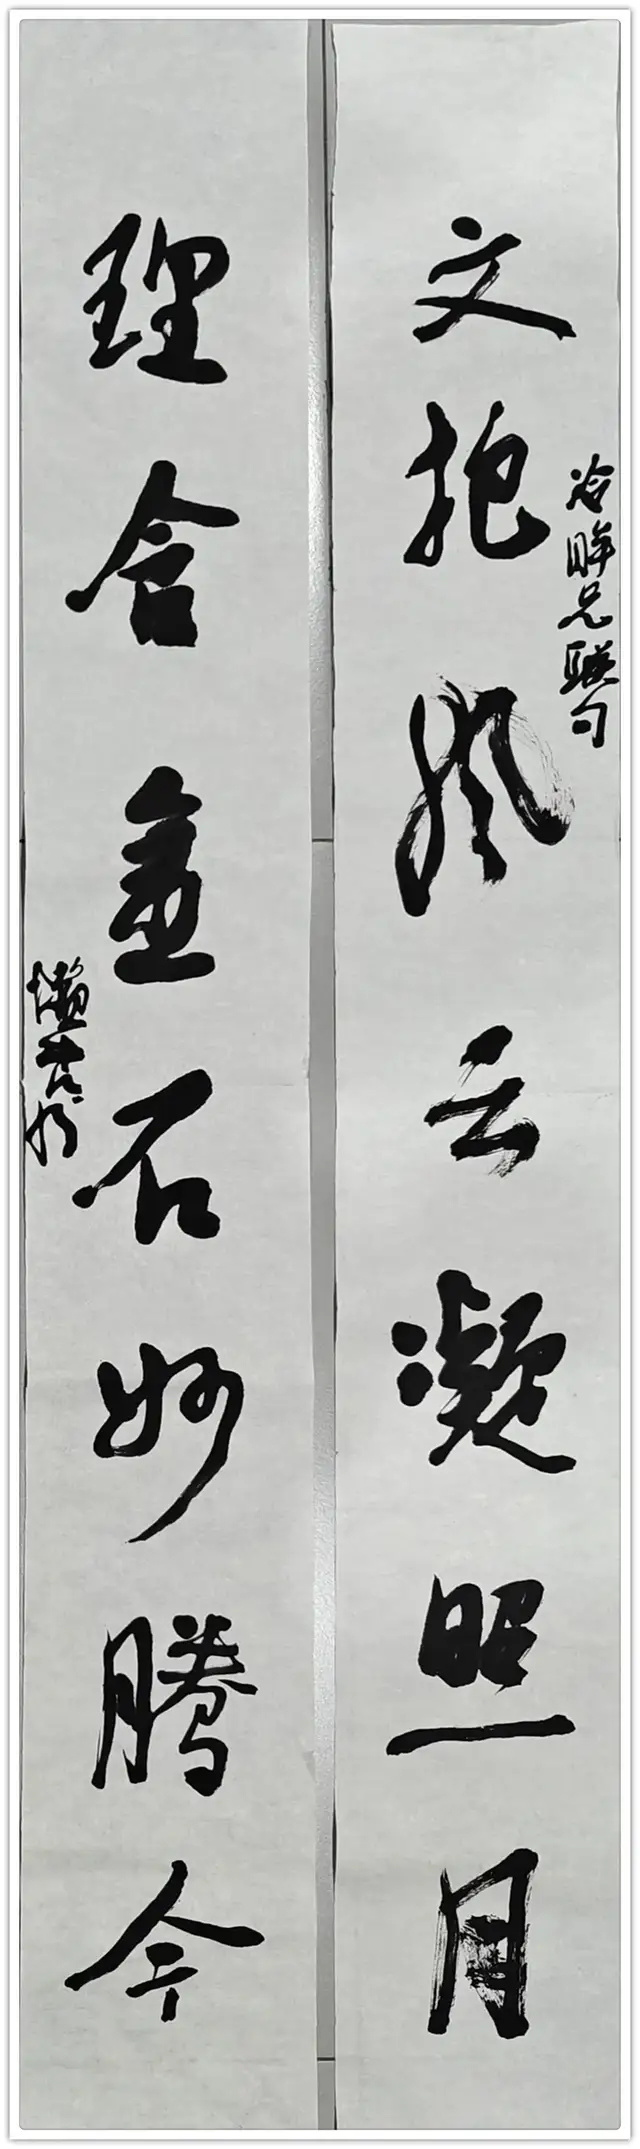 文抱风云凝照月
冷眸兄联句
理含金石妙腾今